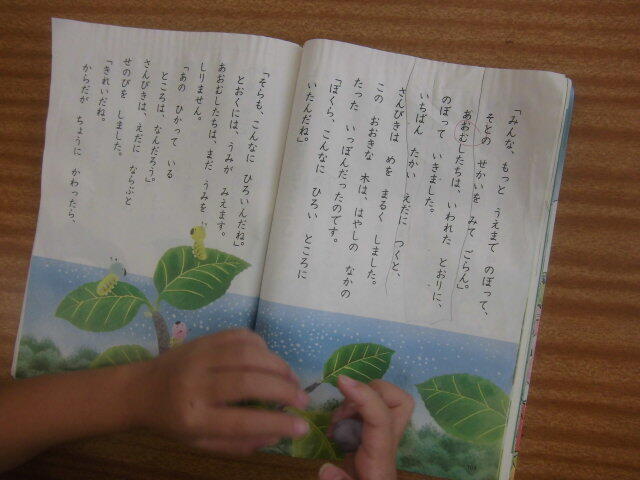 「みんな、もっと うえまで のぼって、
そとの せかいを みて ごらん。」
あおむしたちは、いわれた とおりに、
のぼって いきました。
いちばん たかい えだに つくと、
さんびきは めを まるく しました。
この おおきな 木は、はやしの なかの
たった いっぽんだったのです。
「ぼくら、こんなに ひろい ところに
いたんだね。」
「そらも、こんなに ひろいんだね。」
とおくには、うみが みえます。
あおむしたちは、まだ うみを
しりません。
「あの ひかって いる
ところは、なんだろう。」
さんびきは、えだに ならぶと
せのびを しました。
「きれいだね。
からだが ちょうに かわったら、